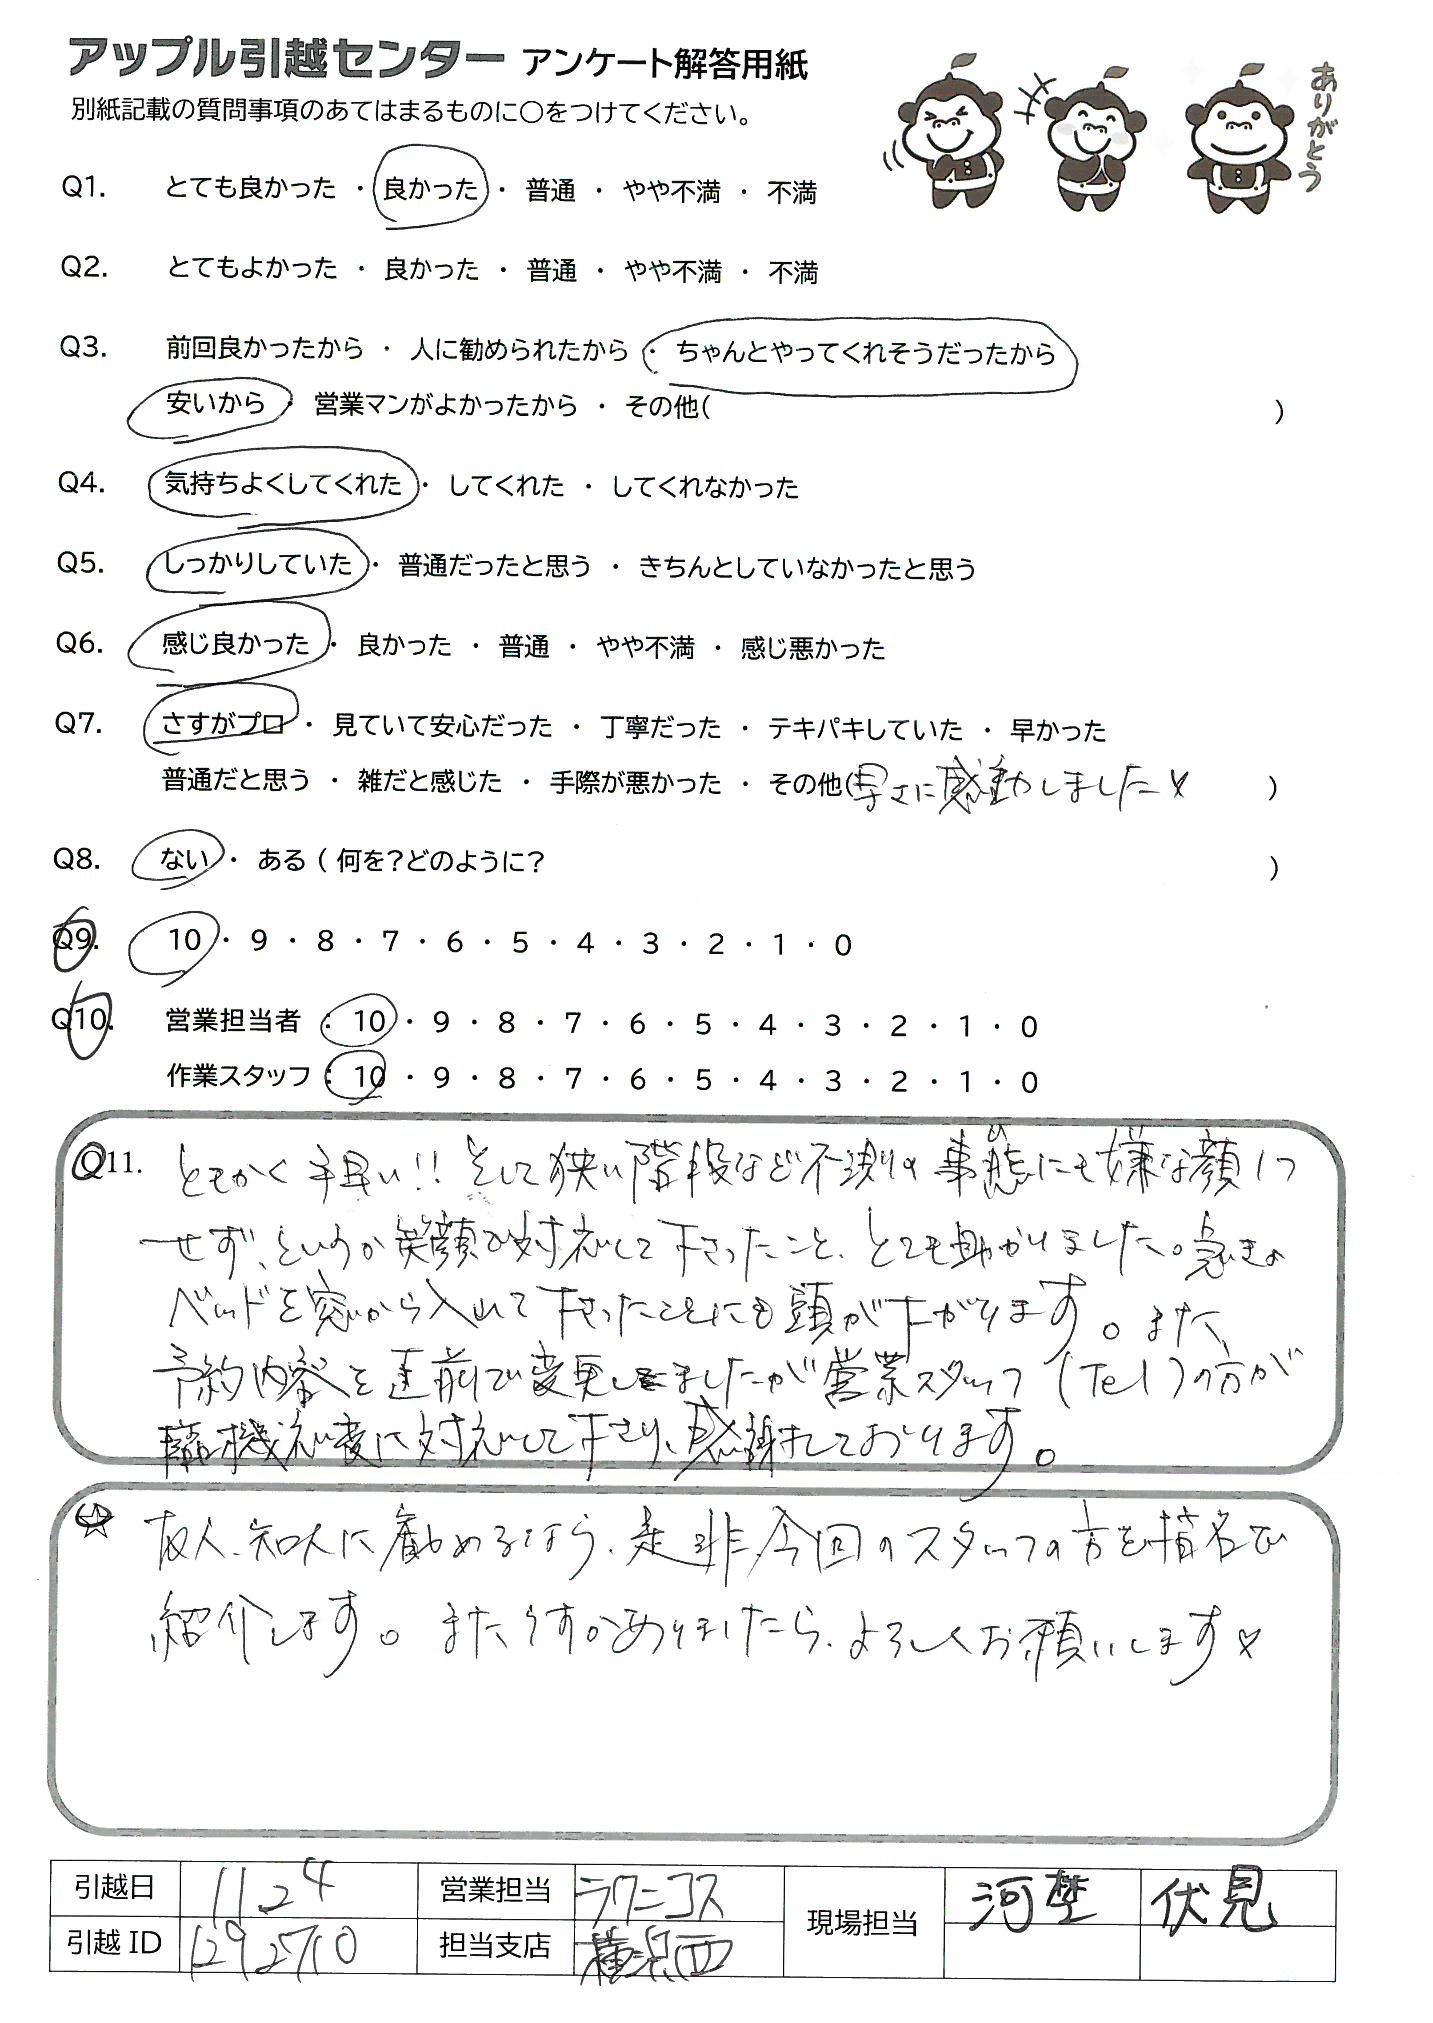 アップル引越センター アンケート解答用紙
別紙記載の質問事項のあてはまるものに○をつけてください。
ありがとう
Q1. とても良かった ・ 良かった ・ 普通 ・ やや不満 ・ 不満
Q2. とてもよかった ・ 良かった ・ 普通 ・ やや不満 ・ 不満
Q3. 前回良かったから ・ 人に勧められたから ・ ちゃんとやってくれそうだったから
安いから ・ 営業マンがよかったから ・ その他( )
Q4. 気持ちよくしてくれた ・ してくれた ・ してくれなかった
Q5. しっかりしていた ・ 普通だったと思う ・ きちんとしていなかったと思う
Q6. 感じ良かった ・ 良かった ・ 普通 ・ やや不満 ・ 感じ悪かった
Q7. さすがプロ ・ 見ていて安心だった ・ 丁寧だった ・ テキパキしていた ・ 早かった
普通だと思う ・ 雑だと感じた ・ 手際が悪かった ・ その他(早さに感動しました♡ )
Q8. ない ・ ある ( 何を?どのように? )
Q9. 10 ・ 9 ・ 8 ・ 7 ・ 6 ・ 5 ・ 4 ・ 3 ・ 2 ・ 1 ・ 0
Q10. 営業担当者 : 10 ・ 9 ・ 8 ・ 7 ・ 6 ・ 5 ・ 4 ・ 3 ・ 2 ・ 1 ・ 0
作業スタッフ : 10 ・ 9 ・ 8 ・ 7 ・ 6 ・ 5 ・ 4 ・ 3 ・ 2 ・ 1 ・ 0
Q11. ともかく手早い!! そして狭い階段など不測の事態にも嫌な顔1つ
せず、というか笑顔で対応して下さったこと、とても助かりました。急きょ
ベッドを窓から入れて下さったことにも頭が下がります。また、
予約内容を直前で変更しましたが営業スタッフ(Tel)の方が
臨機応変に対応して下さり、感謝しております。
☆ 友人、知人に勧めるなら、是非、今回のスタッフの方を指名で
紹介します。またありましたら、よろしくお願いします♡
引越日 11.24 営業担当 ラクニコス 現場担当 河埜 伏見
引越ID 1292710 担当支店 横浜西